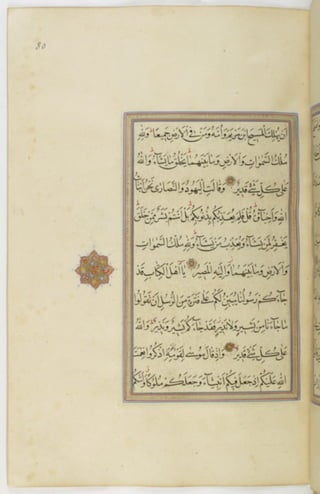 80
ان يهلك المسيح ابن مريم وامه ومن فى الارض جميعا ولله
ملك السموات والارض وما بينهما يخلق ما يشاء والله
على كل شئ قدير وقالت اليهود والنصارى نحن ابناء
الله واحباؤه قل فلم يعذبكم بذنوبكم بل انتم بشر ممن خلق
يغفر لمن يشاء ويعذب من يشاء ولله ملك السموات
والارض وما بينهما واليه المصير يا اهل الكتاب قد
جاءكم رسولنا يبين لكم على فترة من الرسل ان تقولوا
ما جاءنا من بشير ولا نذير فقد جاءكم بشير ونذير والله
على كل شئ قدير واذ قال موسى لقومه اذكروا نعمة
الله عليكم اذ جعل فيكم انبياء وجعلكم ملوكا واتيكم